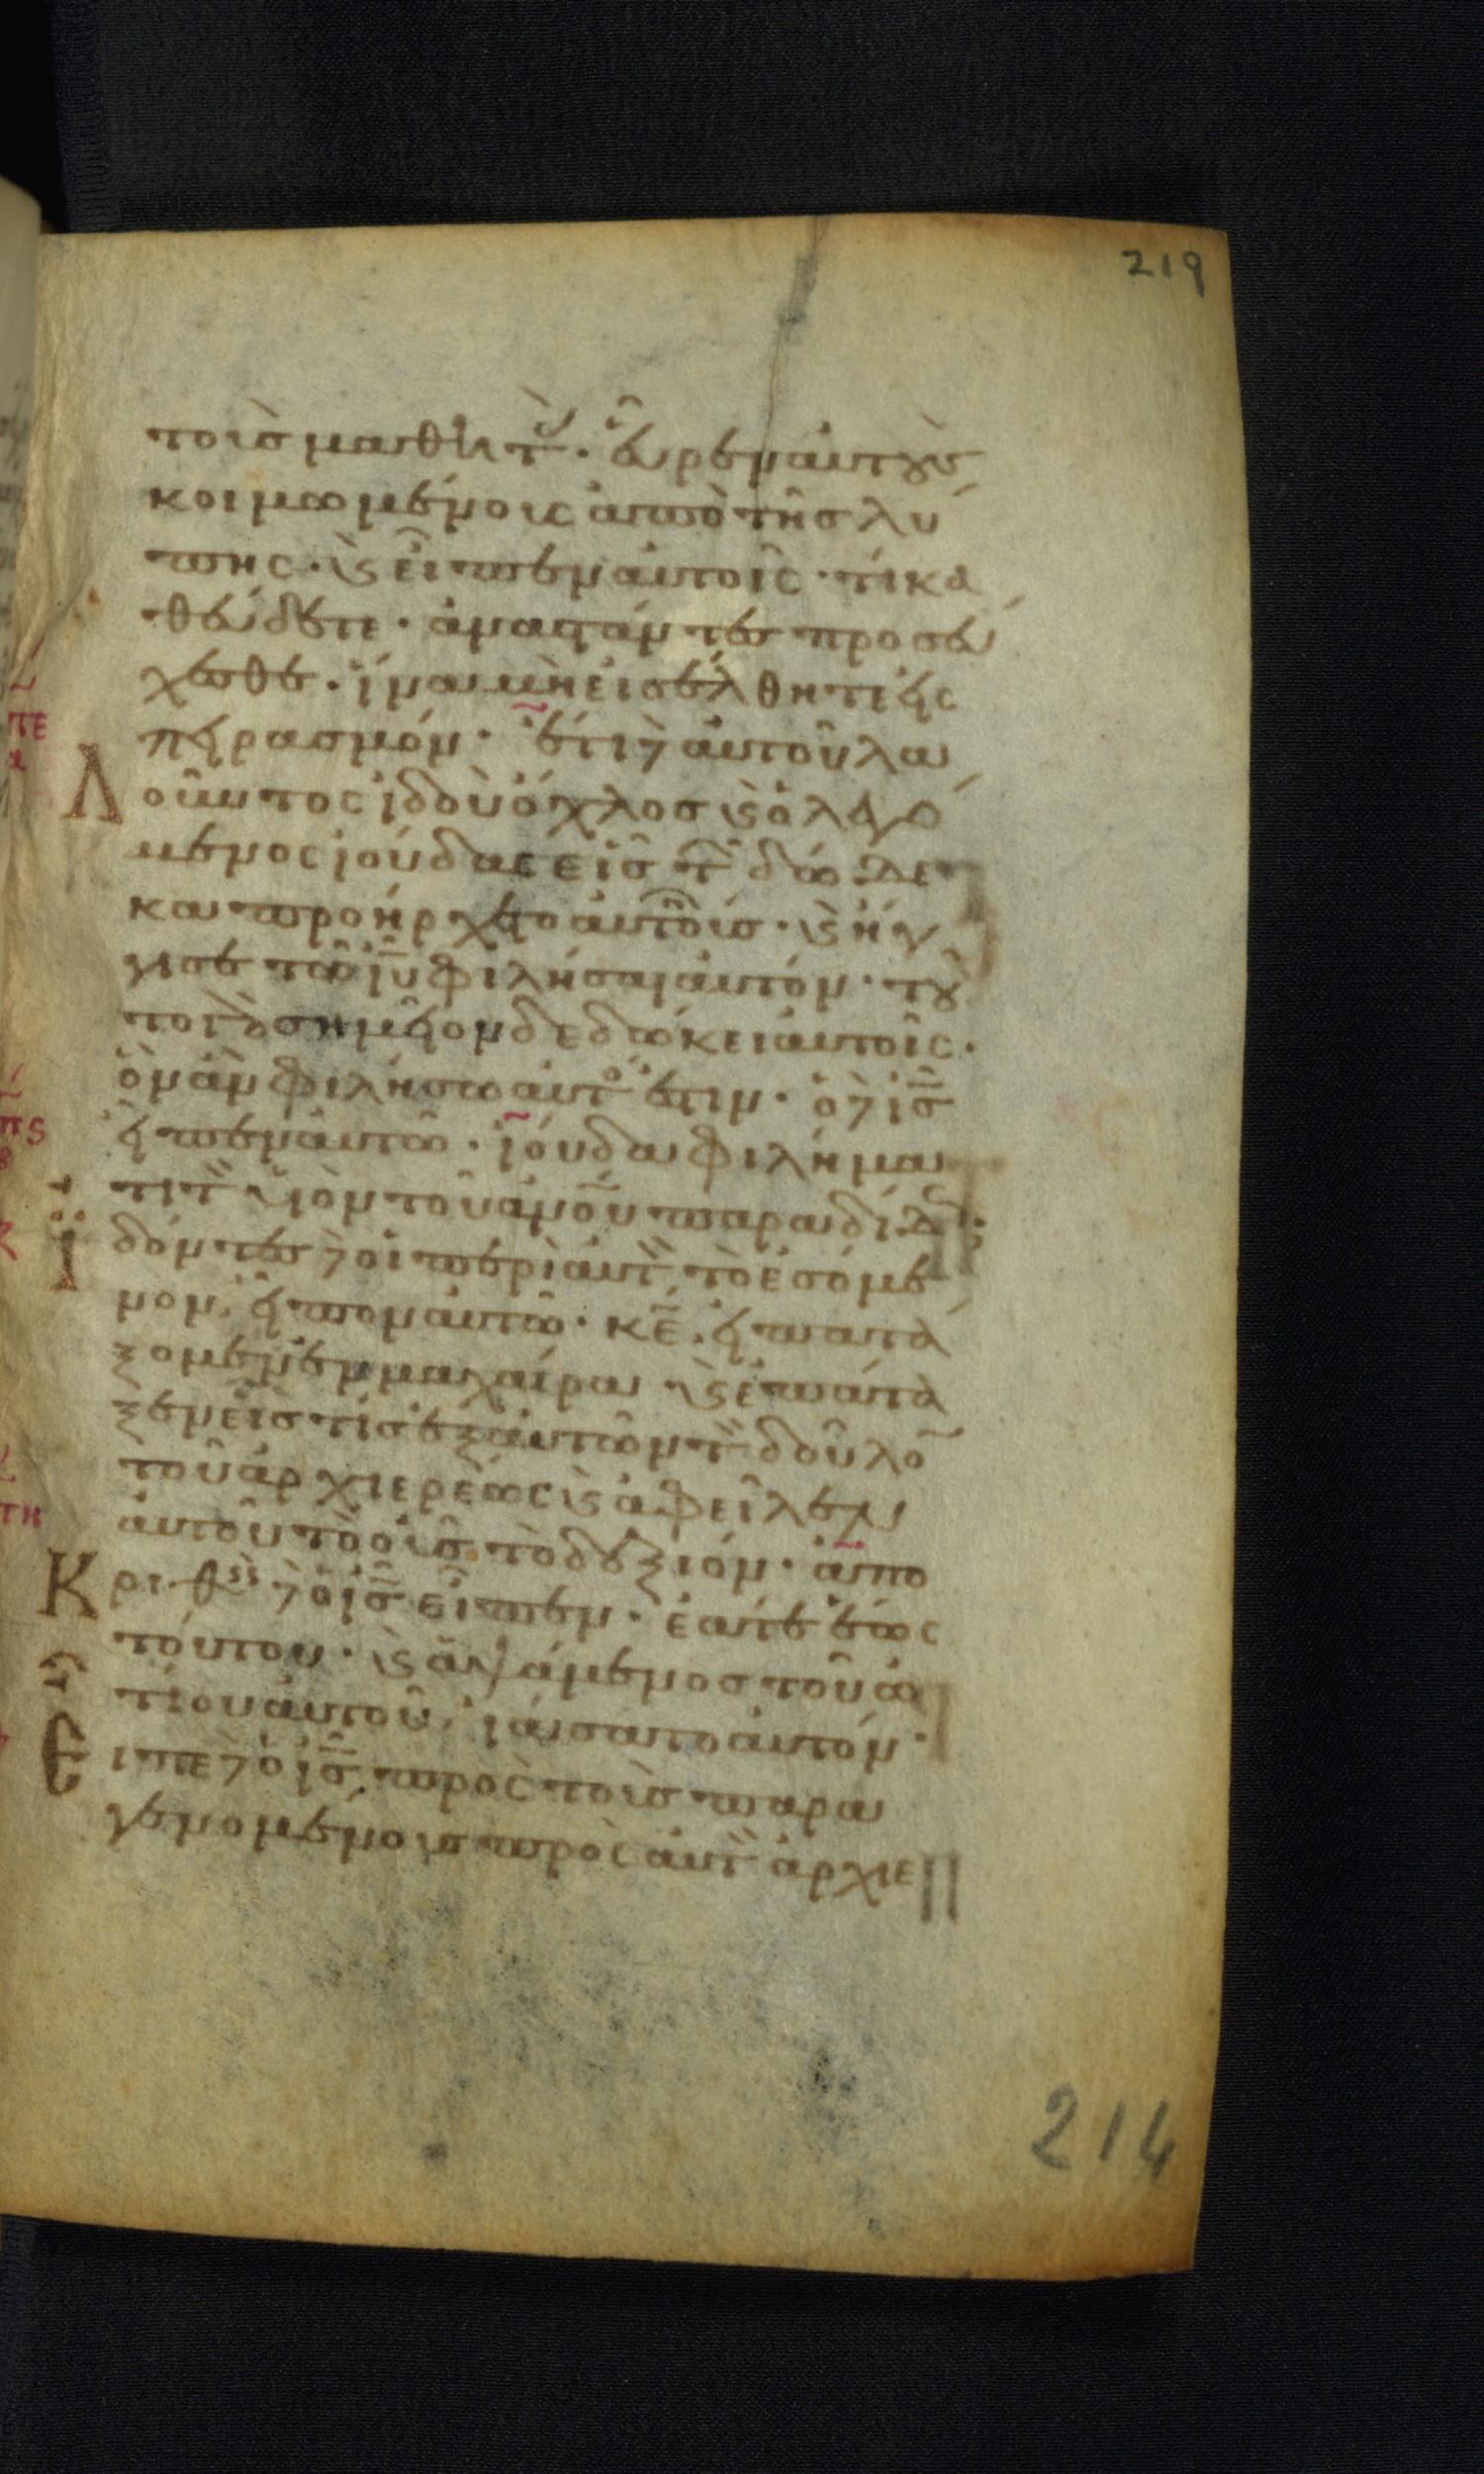 219
τοὺσ μαθητ· εὗρεν αὐτοὺσ
κοιμωμένους ἀπὸ τῆσ λύ
πης· καὶ εἶπεν αὐτοῖς· τί κα
θεύδετε· ἀναστάντες προσεύ
χεσθε· ἵνα μὴ εἰσέλθητε εἰς
πειρασμόν· ἔτι δὲ αὐτοῦ λα
Λοῦντος ἰδοὺ ὄχλοσ καὶ ὁ λεγό
μενος ἰούδας εἷσ τ δώδε
κα προήρχετο αὐτοῖσ· καὶ ἤγ
γισε τῶ ιυ φιλῆσαι αὐτόν· τοῦ
το γὰρ σημεῖον δεδώκει αὐτοῖς·
ὃν ἂν φιλήσω αὐτός ἐστιν· ὁ δὲ ισ
εἶπεν αὐτῶ· ἰούδα φιλήμα
τι τ υἱὸν τοῦ ανου παραδίδως;
Ϊδόντες δὲ οἱ περὶ αὐτ τὸ ἐσόμε
νον, εἶπον αὐτῶ· κε. εἰ πατά
ξομεν ἐν μαχαίρα· καὶ ἐπάτα
ξεν εἷσ τίσ ἐξ αὐτῶν τ δοῦλο
τοῦ ἀρχιερέως καὶ ἀφεῖλεν
αὐτοῦ τὸ οὖσ τὸ δεξιόν· ἀπο
Κριθεὶς δὲ ὁ ισ εἶπεν· ἐᾶτε ἕως
τούτου· καὶ ἁψάμενοσ τοῦ ὠ
τίου αὐτοῦ, ἰάσατο αὐτόν·
Εἶπε δὲ ὁ ισ πρὸς τοὺσ παρα
γενομένους πρὸς αὐτ ἀρχιε
214